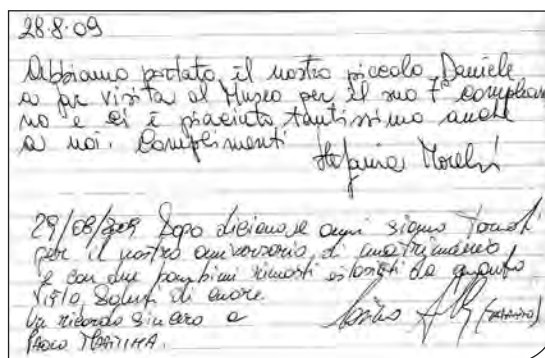 28·8·09
Abbiamo portato il nostro piccolo Daniele
a far visita al Museo per il suo 7° complean
no e ci è piaciuto tantissimo anche
a noi. Complimenti
Stefania
29/08/ Dopo diciannove anni siamo tornati
per il nostro anniversario di matrimonio
e con due bambini rimasti estasiati da quanto
visto. Saluti di cuore.
Un ricordo sincero a
Paolo